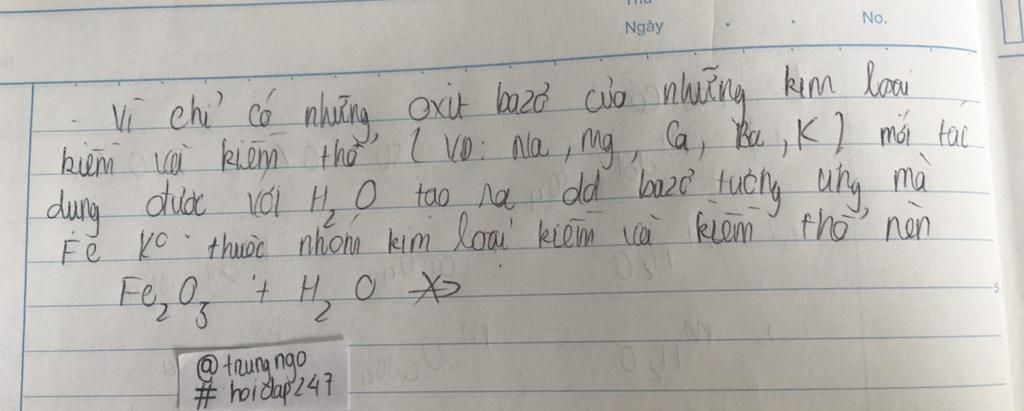 Thứ
Ngày . . No.
- Vì chỉ có những oxit bazơ của những kim loại
kiềm và kiềm thổ ( VD: Na, Mg, Ca, Ba, K ) mới tác
dụng được với H₂O tạo ra dd bazơ tương ứng mà
Fe K⁰ thuộc nhóm kim loại kiềm và kiềm thổ nên
Fe₂O₃ + H₂O -X>
5
@trungngo
# hoidap247